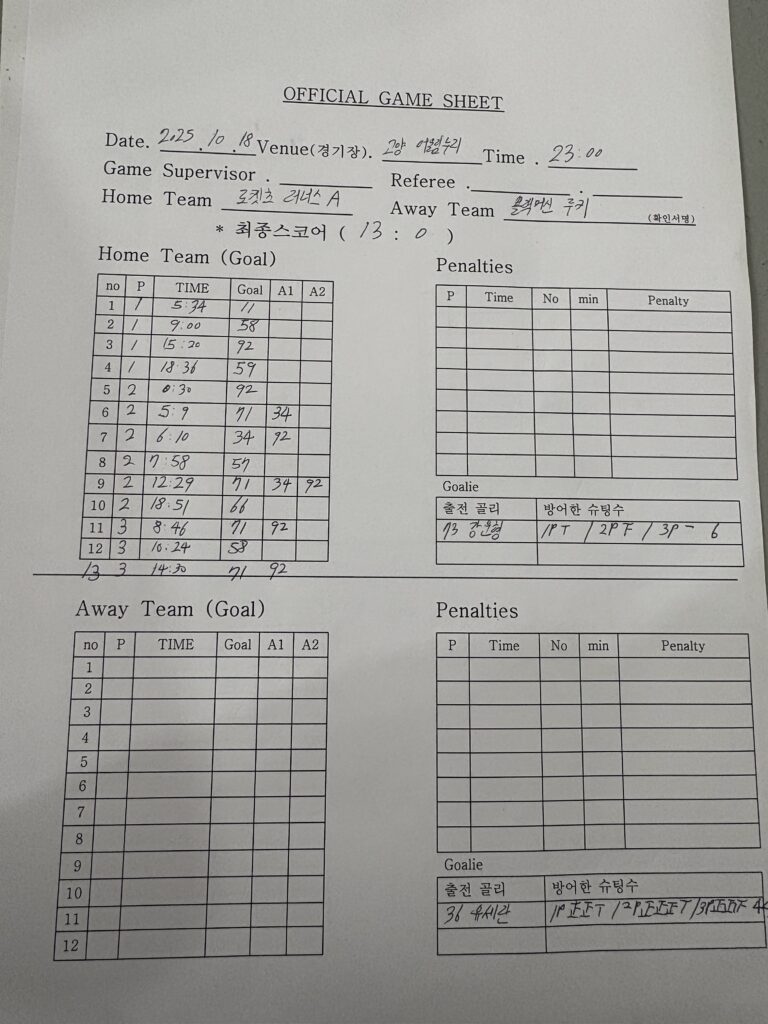 OFFICIAL GAME SHEET
Date. 2025. 10. 18 Venue(경기장). 고양 어울림누리 Time . 23:00
Game Supervisor . Referee . .
Home Team 로켓츠 러너스 A Away Team 블랙머신 루키 (확인서명)
* 최종스코어 ( 13 : 0 )
Home Team (Goal)
no P TIME Goal A1 A2
1 1 5:34 11
2 1 9:00 58
3 1 15:20 92
4 1 18:36 59
5 2 0:30 92
6 2 5:9 71 34
7 2 6:10 34 92
8 2 7:58 57
9 2 12:29 71 34 92
10 2 18:51 66
11 3 8:46 71 92
12 3 10:24 58
13 3 14:30 71 92
Penalties
P Time No min Penalty
Goalie
출전 골리 방어한 슈팅수
73 강윤형 1P T / 2P F / 3P - 6
Away Team (Goal)
no P TIME Goal A1 A2
1
2
3
4
5
6
7
8
9
10
11
12
Penalties
P Time No min Penalty
Goalie
출전 골리 방어한 슈팅수
36 유세란 1P 正正T / 2P 正正正T / 3P